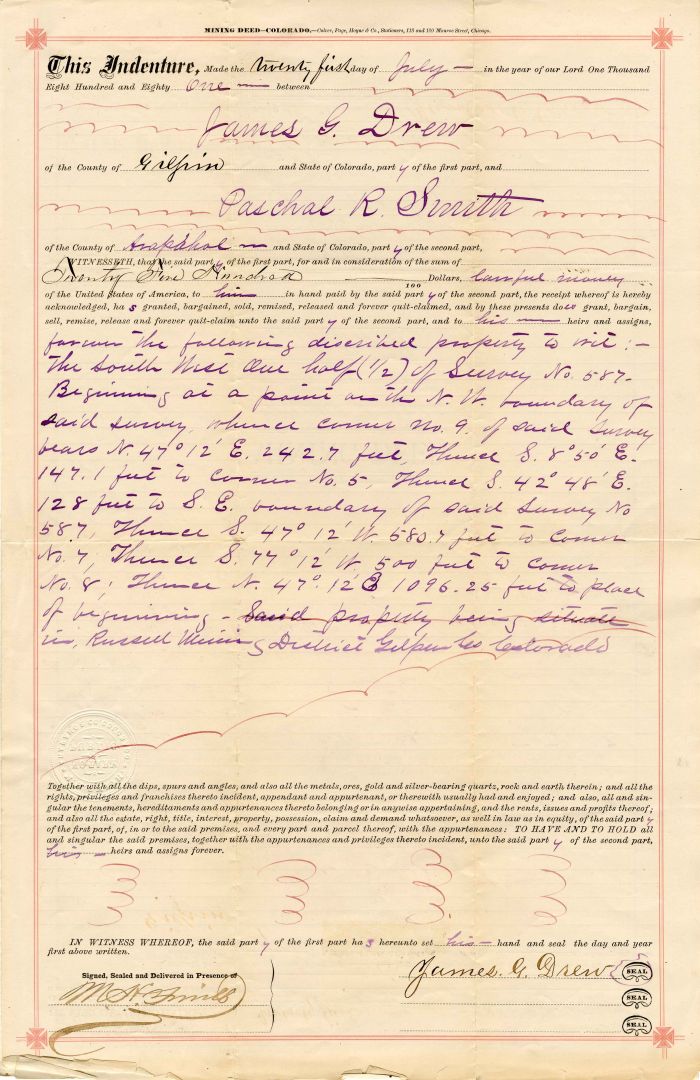 MINING DEED—COLORADO.—Culver, Page, Hoyne & Co., Stationers, 118 and 120 Monroe Street, Chicago.
This Indenture, Made the twenty first day of July in the year of our Lord One Thousand
Eight Hundred and Eighty One between
James G. Drew
of the County of Gilpin and State of Colorado, party of the first part, and
Paschal R. Smith
of the County of Arapahoe and State of Colorado, party of the second part,
WITNESSETH, that the said party of the first part, for and in consideration of the sum of
Twenty Five Hundred 100 Dollars, lawful money
of the United States of America, to him in hand paid by the said party of the second part, the receipt whereof is hereby
acknowledged, has granted, bargained, sold, remised, released and forever quit-claimed, and by these presents does grant, bargain,
sell, remise, release and forever quit-claim unto the said party of the second part, and to his heirs and assigns,
forever the following discribed property to wit:-
the South West One half (1/2) of Survey No. 587-
Beginning at a point on the N. W. boundary of
said survey, whence corner no. 9. of said Survey
bears N. 47° 12' E. 242.7 feet, Thence S. 8° 50' E.
147.1 feet to Corner No. 5, Thence S. 42° 48' E.
128 feet to S. E. boundary of said Survey No
587, Thence S. 47° 12' W. 580.7 feet to Corner
No. 7, Thence S. 77° 12' W. 500 feet to Corner
No. 8; Thence N. 47° 12' E 1096.25 feet to place
of beginning - Said property being situate
in, Russell Mining District Gilpin Co Colorado
Together with all the dips, spurs and angles, and also all the metals, ores, gold and silver-bearing quartz, rock and earth therein; and all the
rights, privileges and franchises thereto incident, appendant and appurtenant, or therewith usually had and enjoyed; and also, all and sin-
gular the tenements, hereditaments and appurtenances thereto belonging or in anywise appertaining, and the rents, issues and profits thereof;
and also all the estate, right, title, interest, property, possession, claim and demand whatsoever, as well in law as in equity, of the said party
of the first part, of, in or to the said premises, and every part and parcel thereof, with the appurtenances: TO HAVE AND TO HOLD all
and singular the said premises, together with the appurtenances and privileges thereto incident, unto the said party of the second part,
his heirs and assigns forever.
IN WITNESS WHEREOF, the said party of the first part has hereunto set his hand and seal the day and year
first above written.
Signed, Sealed and Delivered in Presence of
James. G. Drew SEAL
SEAL
SEAL